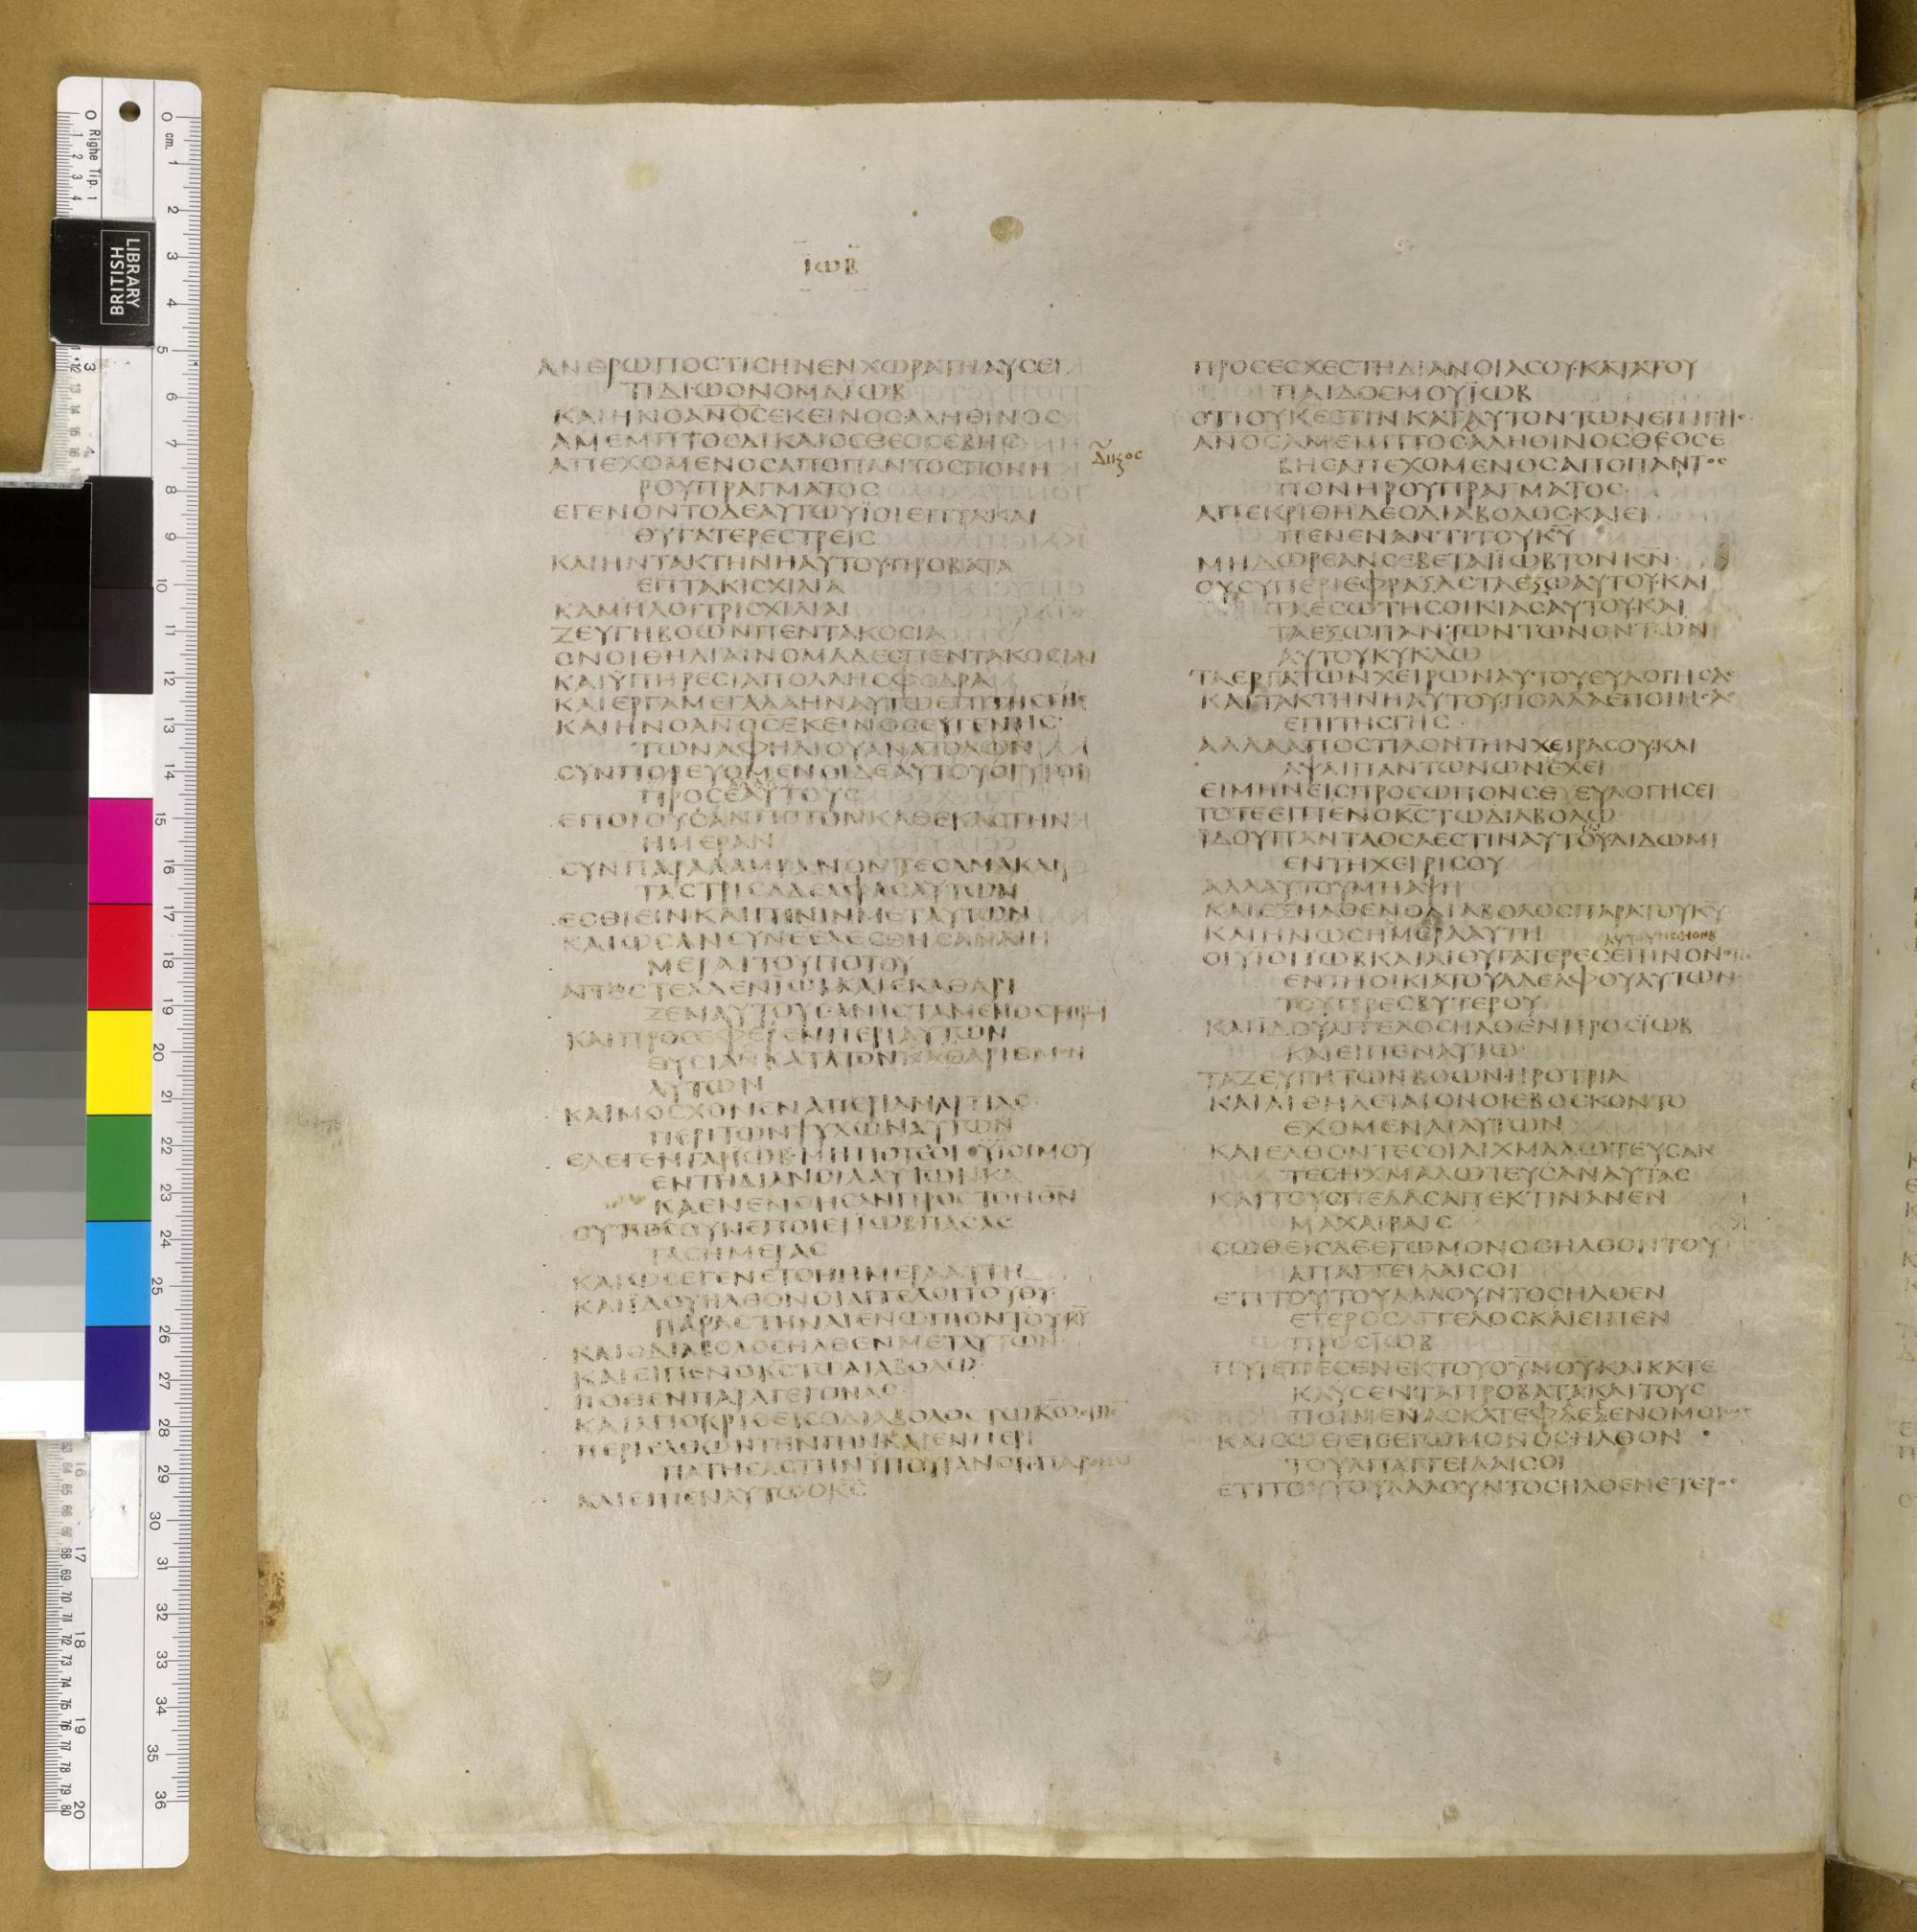 ΪΩΒ
ΑΝΘΡΩΠΟΣΤΙΣΗΝΕΝΧΩΡΑΤΗΑΥΣΕΙ
ΤΙΔΙΩΟΝΟΜΑΪΩΒ
ΚΑΙΗΝΟΑΝΟΣΕΚΕΙΝΟΣΑΛΗΘΙΝΟΣ
ΑΜΕΜΠΤΟΣΔΙΚΑΙΟΣΘΕΟΣΕΒΗΣ
ΑΠΕΧΟΜΕΝΟΣΑΠΟΠΑΝΤΟΣΠΟΝΗ
ΡΟΥΠΡΑΓΜΑΤΟΣ
ΕΓΕΝΟΝΤΟΔΕΑΥΤΩΥΪΟΙΕΠΤΑΚΑΙ
ΘΥΓΑΤΕΡΕΣΤΡΕΙΣ
ΚΑΙΗΝΤΑΚΤΗΝΗΑΥΤΟΥ·ΠΡΟΒΑΤΑ
ΕΠΤΑΚΙΣΧΙΛΙΑ
ΚΑΜΗΛΟΙΤΡΙΣΧΙΛΙΑΙ
ΖΕΥΓΗΒΟΩΝΠΕΝΤΑΚΟΣΙΑ
ΟΝΟΙΘΗΛΙΑΙΝΟΜΑΔΕΣΠΕΝΤΑΚΟΣΙΑΙ
ΚΑΙΫΠΗΡΕΣΙΑΠΟΛΛΗΣΦΟΔΡΑ
ΚΑΙΕΡΓΑΜΕΓΑΛΑΗΝΑΥΤΩΕΠΙΤΗΣΓΗΣ
ΚΑΙΗΝΟΑΝΟΣΕΚΕΙΝΟΣΕΥΓΕΝΗΣ
ΤΩΝΑΦΗΛΙΟΥΑΝΑΤΟΛΩΝ
ΣΥΝΠΟΡΕΥΟΜΕΝΟΙΔΕΑΥΤΟΥΟΙΥΪΟΙ
ΠΡΟΣΕΑΥΤΟΥΣ
ΕΠΟΙΟΥΣΑΝΠΟΤΟΝΚΑΘΕΚΑΣΤΗΝ
ΗΜΕΡΑΝ
ΣΥΝΠΑΡΑΛΑΜΒΑΝΟΝΤΕΣΑΜΑΚΑΙ
ΤΑΣΤΡΙΣΑΔΕΛΦΑΣΑΥΤΩΝ
ΕΣΘΙΕΙΝΚΑΙΠΙΝΙΝΜΕΤΑΥΤΩΝ
ΚΑΙΩΣΑΝΣΥΝΕΤΕΛΕΣΘΗΣΑΝΑΙΗ
ΜΕΡΑΙΤΟΥΠΟΤΟΥ
ΑΠΕΣΤΕΛΛΕΝΪΩΒΚΑΙΕΚΑΘΑΡΙ
ΖΕΝΑΥΤΟΥΣΑΝΙΣΤΑΜΕΝΟΣΠΡΩΪ
ΚΑΙΠΡΟΣΕΦΕΡΕΝΠΕΡΙΑΥΤΩΝ
ΘΥΣΙΑΝΚΑΤΑΤΟΝ
ΑΥΤΩΝ
ΚΑΙΜΟΣΧΟΝΕΝΑΠΕΡΙΑΜΑΡΤΙΑΣ
ΠΕΡΙΤΩΝΨΥΧΩΝΑΥΤΩΝ
ΕΛΕΓΕΝΓΑΡΪΩΒ·ΜΗΠΟΤΕΟΙΥΪΟΙΜΟΥ
ΕΝΤΗΔΙΑΝΟΙΑΑΥΤΩΝΚΑ
ΚΑΕΝΕΝΟΗΣΑΝΠΡΟΣΤΟΝΘΝ
ΟΥΤΩΣΟΥΝΕΠΟΙΕΙΪΩΒΠΑΣΑΣ
ΤΑΣΗΜΕΡΑΣ
ΚΑΙΩΣΕΓΕΝΕΤΟΗΗΜΕΡΑΑΥΤΗ
ΚΑΙΪΔΟΥΗΛΘΟΝΟΙΑΓΓΕΛΟΙΤΟΥΘΥ·
ΠΑΡΑΣΤΗΝΑΙΕΝΩΠΙΟΝΤΟΥΚΥ
ΚΑΙΟΔΙΑΒΟΛΟΣΗΛΘΕΝΜΕΤΑΥΤΩΝ
ΚΑΙΕΙΠΕΝΟΚΣΤΩΔΙΑΒΟΛΩ·
ΠΟΘΕΝΠΑΡΑΓΕΓΟΝΑΣ
ΚΑΙΑΠΟΚΡΙΘΕΙΣΟΔΙΑΒΟΛΟΣΤΩΚΩΕΙΠΕ
ΠΕΡΙΕΛΘΩΝΤΗΝΓΗΝΚΑΙΕΝΠΕΡΙ
ΠΑΤΗΣΑΣΤΗΝΫΠΟΥΡΑΝΟΝΠΑΡΙΜΙ
ΚΑΙΕΙΠΕΝΑΥΤΩΟΚΣ
ΠΡΟΣΕΣΧΕΣΤΗΔΙΑΝΟΙΑΣΟΥ·ΚΑΤΑΤΟΥ
ΠΑΙΔΟΣΜΟΥΪΩΒ
ΟΤΙΟΥΚΕΣΤΙΝΚΑΤΑΥΤΟΝΤΩΝΕΠΙΓΗΣ
ΑΝΟΣΑΜΕΜΠΤΟΣΑΛΗΘΙΝΟΣΘΕΟΣΕ
ΒΗΣΑΠΕΧΟΜΕΝΟΣΑΠΟΠΑΝΤΟΣ
ΠΟΝΗΡΟΥΠΡΑΓΜΑΤΟΣ·
ΑΠΕΚΡΙΘΗΔΕΟΔΙΑΒΟΛΟΣ·ΚΑΙΕΙ
ΠΕΝΕΝΑΝΤΙΤΟΥΚΥ
ΜΗΔΩΡΕΑΝΣΕΒΕΤΑΙΪΩΒΤΟΝΚΝ
ΟΥΣΥΠΕΡΙΕΦΡΑΞΑΣΤΑΕΞΩΑΥΤΟΥ·ΚΑΙ
ΤΑΕΣΩΤΗΣΟΙΚΙΑΣΑΥΤΟΥ·ΚΑΙ
ΤΑΕΞΩΠΑΝΤΩΝΤΩΝΟΝΤΩΝ
ΑΥΤΟΥΚΥΚΛΩ
ΤΑΕΡΓΑΤΩΝΧΕΙΡΩΝΑΥΤΟΥΕΥΛΟΓΗΣΑΣ
ΚΑΙΤΑΚΤΗΝΗΑΥΤΟΥ·ΠΟΛΛΑΕΠΟΙΗΣΑΣ
ΕΠΙΤΗΣΓΗΣ·
ΑΛΛΑΑΠΟΣΤΙΛΟΝΤΗΝΧΕΙΡΑΣΟΥ·ΚΑΙ
ΑΨΑΙΠΑΝΤΩΝΩΝΕΧΕΙ
ΕΙΜΗΝΕΙΣΠΡΟΣΩΠΟΝΣΕ ΕΥΛΟΓΗΣΕΙ
ΤΟΤΕΕΙΠΕΝΟΚΣΤΩΔΙΑΒΟΛΩ
ΪΔΟΥΠΑΝΤΑΟΣΑΕΣΤΙΝΑΥΤΟΥΔΙΔΩΜΙ
ΕΝΤΗΧΕΙΡΙΣΟΥ
ΑΛΛΑΥΤΟΥΜΗΑΨΗ
ΚΑΙΕΞΗΛΘΕΝΟΔΙΑΒΟΛΟΣΠΑΡΑΤΟΥΚΥ
ΚΑΙΗΝΩΣΗΜΕΡΑΑΥΤΗ
ΟΙΥΪΟΙΪΩΒΚΑΙΑΙΘΥΓΑΤΕΡΕΣΕΠΙΝΟΝ
ΕΝΤΗΟΙΚΙΑΤΟΥΑΔΕΛΦΟΥΑΥΤΩΝ
ΤΟΥΠΡΕΣΒΥΤΕΡΟΥ
ΚΑΙΪΔΟΥΑΓΓΕΛΟΣΗΛΘΕΝΠΡΟΣΪΩΒ
ΚΑΙΕΙΠΕΝΑΥΤΩ
ΤΑΖΕΥΓΗΤΩΝΒΟΩΝΗΡΟΤΡΙΑ
ΚΑΙΑΙΘΗΛΕΙΑΙΟΝΟΙΕΒΟΣΚΟΝΤΟ
ΕΧΟΜΕΝΑΙΑΥΤΩΝ
ΚΑΙΕΛΘΟΝΤΕΣΟΙΑΙΧΜΑΛΩΤΕΥΣΑΝ
ΤΕΣΗΧΜΑΛΩΤΕΥΣΑΝΑΥΤΑΣ
ΚΑΙΤΟΥΣΠΕΔΑΣΑΠΕΚΤΙΝΑΝΕΝ
ΜΑΧΑΙΡΑΙΣ
ΣΩΘΕΙΣΔΕΕΓΩΜΟΝΟΣΗΛΘΟΝΤΟΥ
ΑΠΑΓΓΕΙΛΑΙΣΟΙ
ΕΤΙΤΟΥΤΟΥΛΑΛΟΥΝΤΟΣΗΛΘΕΝ
ΕΤΕΡΟΣΑΓΓΕΛΟΣΚΑΙΕΙΠΕΝ
ΠΡΟΣΪΩΒ
ΠΥΡΕΠΕΣΕΝΕΚΤΟΥΟΥΝΟΥ·ΚΑΙΚΑΤΕ
ΚΑΥΣΕΝΤΑΠΡΟΒΑΤΑΚΑΙΤΟΥΣ
ΠΟΙΜΕΝΑΣΚΑΤΕΦΑΓΕΝΟΜΟΙΩΣ
ΚΑΙΣΩΘΕΙΣΕΓΩΜΟΝΟΣΗΛΘΟΝ
ΤΟΥΑΠΑΓΓΕΙΛΑΙΣΟΙ
ΕΤΙΤΟΥΤΟΥΛΑΛΟΥΝΤΟΣΗΛΘΕΝΕΤΕΡΟΣ
BRITISH
LIBRARY